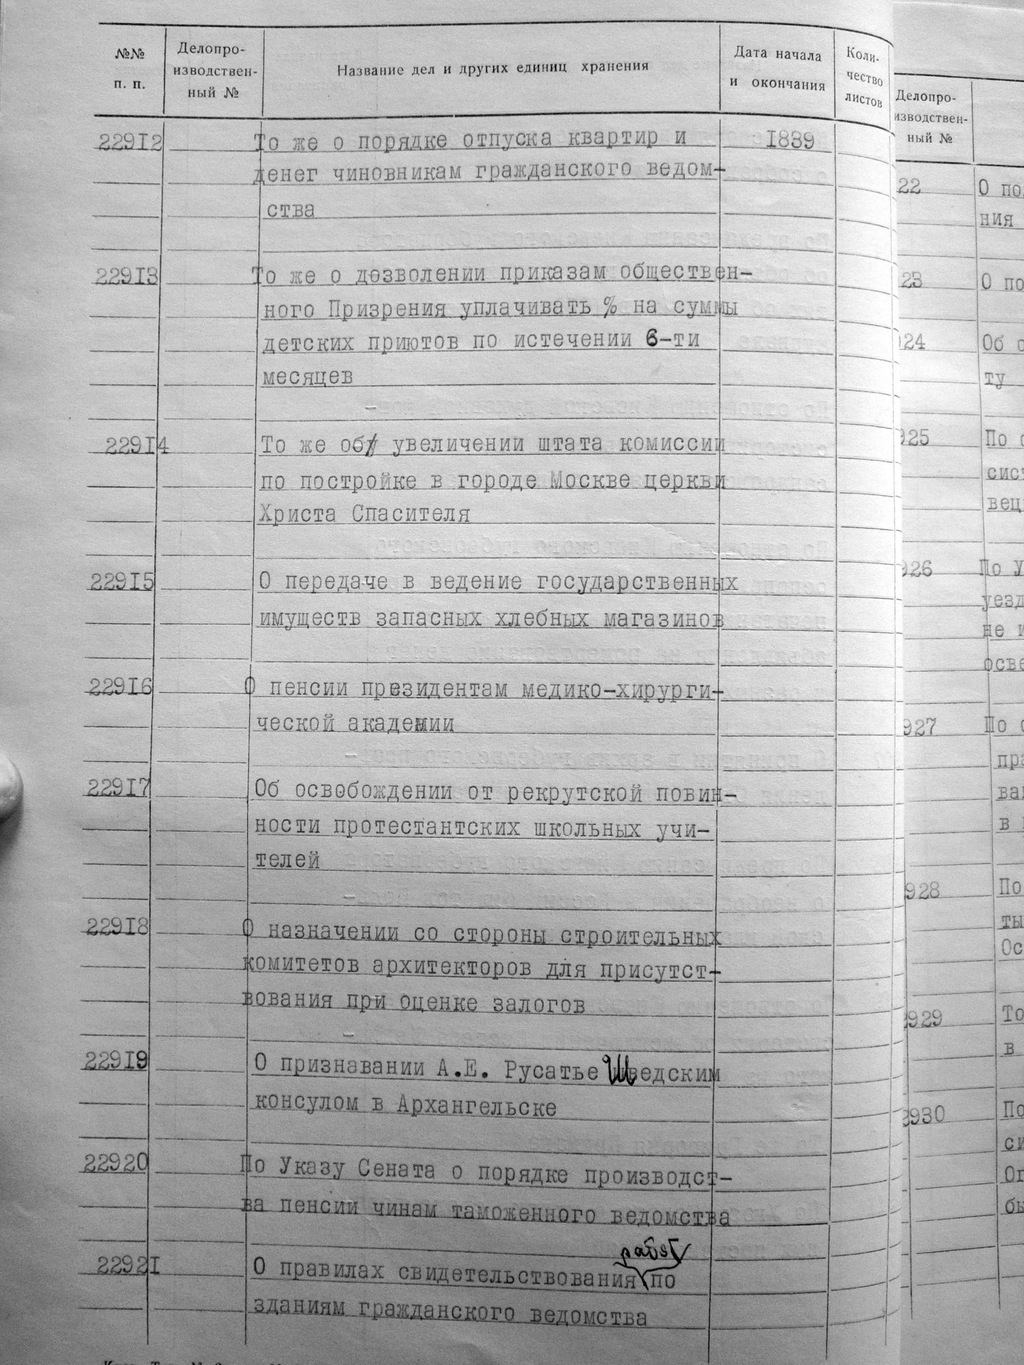 №№ п. п.
Делопро-
изводствен-
ный №
Название дел и других единиц хранения
Дата начала
и окончания
Коли-
чество
листов
22912 То же о порядке отпуска квартир и 1839
денег чиновникам гражданского ведом-
ства
22913 То же о дозволении приказам обществен-
ного Призрения уплачивать % на суммы
детских приютов по истечении 6-ти
месяцев
22914 То же об увеличении штата комиссии
по постройке в городе Москве церкви
Христа Спасителя
22915 О передаче в ведение государственных
имуществ запасных хлебных магазинов
22916 О пенсии президентам медико-хирурги-
ческой академии
22917 Об освобождении от рекрутской повин-
ности протестантских школьных учи-
телей
22918 О назначении со стороны строительных
комитетов архитекторов для присутст-
вования при оценке залогов
22919 О признавании А.Е. Русатье Шведским
консулом в Архангельске
22920 По Указу Сената о порядке производст-
ва пенсии чинам таможенного ведомства
22921 О правилах свидетельствования работ по
зданиям гражданского ведомства
Делопро-
изводствен-
ный №
22 О по
ния
23 О по
924 Об о
ту
925 По о
сис
вец
926 По У
уезд
не и
осве
927 По о
пра
ва
в
928 По
ты
Ос
2929 То
в
2930 По
си
Ог
бы